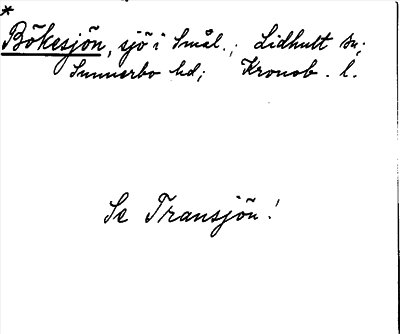 *
Bökesjön, sjö i Smål.; Lidhult sn;
Sunnerbo hd; Kronob. l.
Se Transjön!